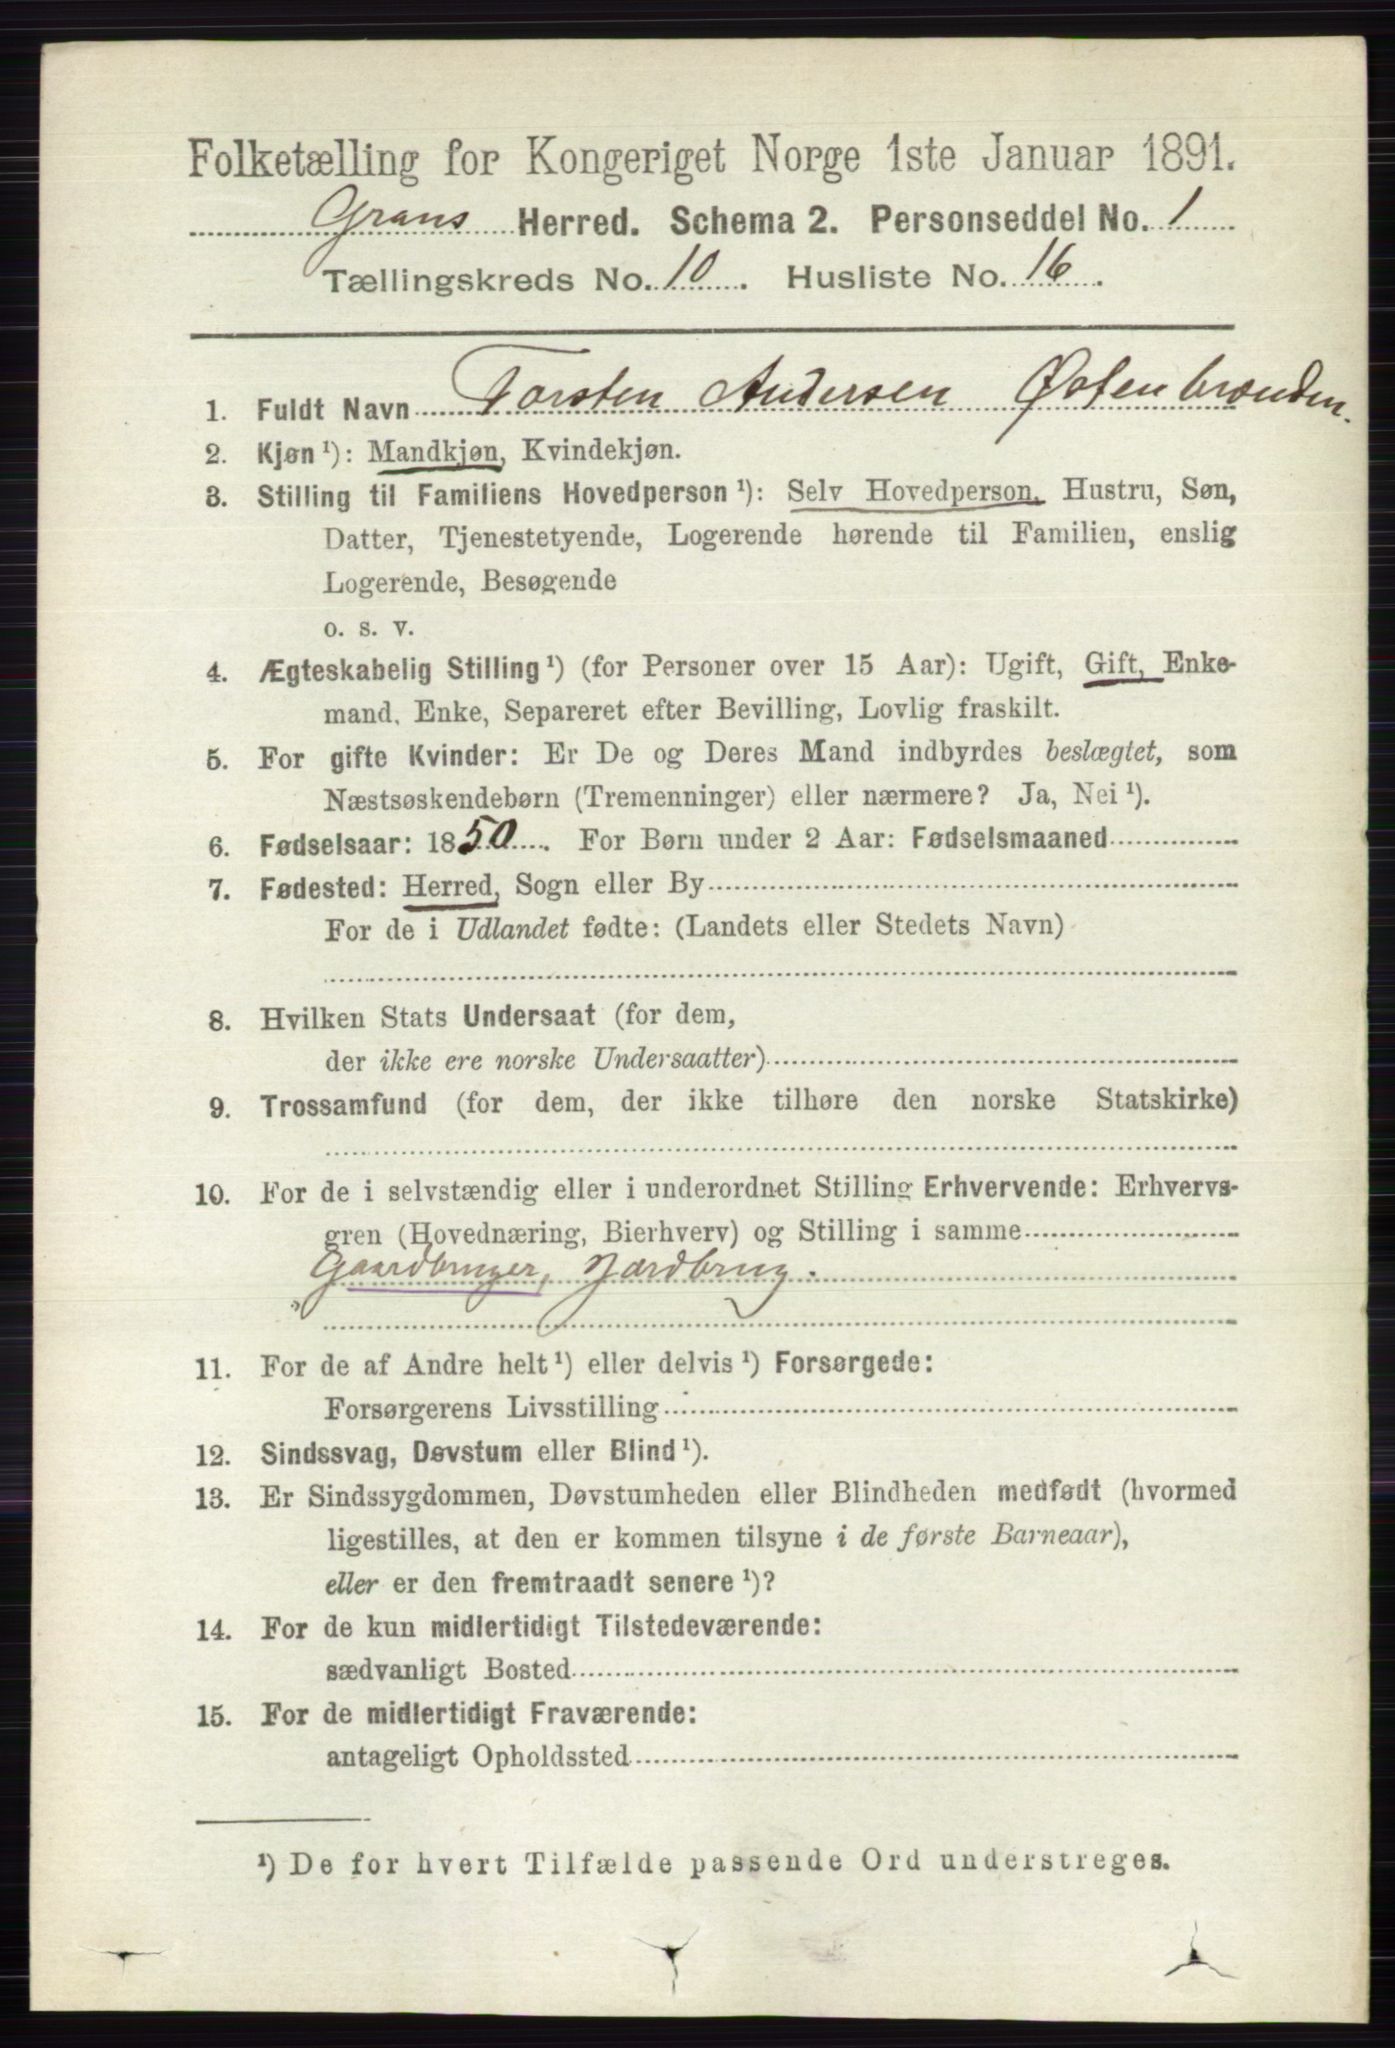 Folketælling for Kongeriget Norge 1ste Januar 1891.
Grans Herred. Schema 2. Personseddel No. 1
Tællingskreds No. 10. Husliste No. 16.
1. Fuldt Navn Torsten Andersen Østenbrænden.
2. Kjøn ¹): Mandkjøn, Kvindekjøn.
3. Stilling til Familiens Hovedperson ¹): Selv Hovedperson, Hustru, Søn,
Datter, Tjenestetyende, Logerende hørende til Familien, enslig
Logerende, Besøgende
o. s. v.
4. Ægteskabelig Stilling ¹) (for Personer over 15 Aar): Ugift, Gift, Enke-
mand, Enke, Separeret efter Bevilling, Lovlig fraskilt.
5. For gifte Kvinder: Er De og Deres Mand indbyrdes beslægtet, som
Næstsøskendebørn (Tremenninger) eller nærmere? Ja, Nei ¹).
6. Fødselsaar: 1850. For Børn under 2 Aar: Fødselsmaaned
7. Fødested: Herred, Sogn eller By
For de i Udlandet fødte: (Landets eller Stedets Navn)
8. Hvilken Stats Undersaat (for dem,
der ikke ere norske Undersaatter)
9. Trossamfund (for dem, der ikke tilhøre den norske Statskirke)
10. For de i selvstændig eller i underordnet Stilling Erhvervende: Erhvervs-
gren (Hovednæring, Bierhverv) og Stilling i samme
Gaardbruger, Jordbrug.
11. For de af Andre helt ¹) eller delvis ¹) Forsørgede:
Forsørgerens Livsstilling
12. Sindssvag, Døvstum eller Blind ¹).
13. Er Sindssygdommen, Døvstumheden eller Blindheden medfødt (hvormed
ligestilles, at den er kommen tilsyne i de første Barneaar),
eller er den fremtraadt senere ¹)?
14. For de kun midlertidigt Tilstedeværende:
sædvanligt Bosted
15. For de midlertidigt Fraværende:
antageligt Opholdssted
¹) De for hvert Tilfælde passende Ord understreges.